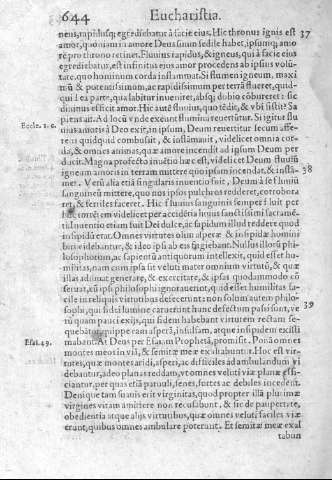 644 Eucharistia.
neus, rapidusq; egrediebatur à facie eius. Hic thronus ignis est 37
amor, quoniam in amore Deus suum sedile habet, ipsumq; amo
rẽ pro throno retinet. Fluuius rapidus, & igneus, qui à facie eius
egrediebatur, est infinitus eius amor procedens ab ipsius volũ
tate, quo hominum corda inflammat. Si flumen igneum, maxi
mũ & potentissimum, ac rapidissimum per terrã flueret, quid-
quid ea parte, qua labitur inueniret, absq; dubio cõbureret: sic
diuinus efficit amor. Hic autẽ fluuius, quo tẽdit, & vbi sistit? Sa
piens ait. Ad locũ vnde exeunt flumina reuertũtur. Si igitur flu
Eccle. 1. 6. uius amoris à Deo exit, in ipsum, Deum reuertitur secum affe-
rens quidquid combussit, & inflãmauit, videlicet omnia cor-
da, & omnes animas, quæ amore incendit ad ipsum Deum per
ducit. Magna profecto inuẽtio hæc est, videlicet Deum fluuiũ
igneum amoris in terram mittere quo ipsam incendat, & inflã- 38
met. Verũ alia etiã singularis inuentio fuit, Deum à se fluuiũ
sanguineũ mittere, quo nos ipsos pulchros redderet, corrobora
ret, & fertiles faceret. Hic fluuius sanguinis semper fuit per
hoc omnẽm videlicet per accidẽtia huius sanctissimi sacramẽ-
ti. Inuentio etiam fuit Dei dulce, ac sapidum illud reddere quod
insipidũ erat. Omnes virtutes olim asperæ & insipidæ homini
bus videbantur, & ideo ipsi ab eis fugiebant. Nullus illorũ phi-
losophorum, ac sapientũ antiquorum intellexit, quid esset hu-
militas, nam cum ipsa sit veluti mater omnium virtutũ, & quæ
illas adunat generare, & exercitare, & ipsas quodammodo cõ
seruat, eũ ipsi philosophi ignorauerint, quid esset humilitas fa-
cile in reliquis virtutibus defecerunt: non solum autem philo- 39
sophi, qui fidei lumine caruerint hunc defectum passi sunt, ve
rũ quam pauci exijs, qui fidem habebant virtutem rectam se-
quebãtur, quippe nam asperã, insulsam, atque insipidam existi
Esai. 49. mabant. At Deus per Esaiam Prophetã, promisit. Ponã omnes
montes meos in viã, & semitæ meæ exaltabuntur. Hoc est vir-
tutes, quæ montes ardui, asperi, ac difficiles ad ambulandum vi
debantur, adeo planas reddam, vt omnes veluti viæ planæ effi-
ciantur, per quas etiã paruuli, senes, fortes ac debiles incedent.
Denique tam suauis erit virginitas, quod propter illã plurimæ
virgines vitam amittere non recusabunt, & sic de paupertate,
obedientia atque alijs virtutibus, quæ omnes veluti faciles viæ
erunt, quibus omnes ambulare poterunt. Et semitæ meæ exal
tabun